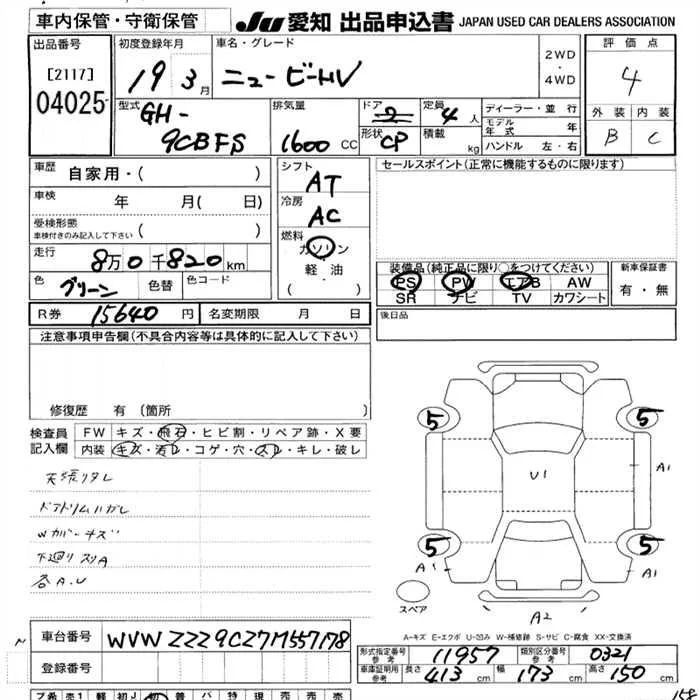 車内保管・守衛保管 JU 愛知 出品申込書 JAPAN USED CAR DEALERS ASSOCIATION
出品番号 初度登録年月 車名・グレード 2WD ・ 4WD 評価点
[2117] 19 3月 ニュービートル 4
04025 型式 GH- 9CBFS 排気量 1600 CC ドア 2 定員 4人 ディーラー・並行 外装 内装
形状 CP 積載 kg モデル年式 年 B C
ハンドル 左・右
車歴 自家用・( ) シフト AT セールスポイント(正常に機能するものに限ります)
車検 年 月( 日) 冷房 AC
受検形態 車検付きのみ記入して下さい ( )
走行 8万0千820km 燃料 ガソリン 軽油 ( ・ )
色 グリーン 色替 色コード
装備品(純正品に限り○をつけてください) 新車保証書
PS PW エアB AW 有・無
SR ナビ TV カワシート
R券 15640円 名変期限 月 日 後日品
注意事項申告欄(不具合内容等は具体的に記入して下さい)
修復歴 有(箇所 )
検査員記入欄 FW キズ・飛石・ヒビ割・リペア跡・X要
内装 キズ・汚レ・コゲ・穴・スレ・キレ・破レ
天張リタレ
ドアトリムハガレ
Wカバーキズ
下廻リスリA
各A.U
5 5
A1
U1
5 5
A1 A1
スペア
A2
A-キズ E-エクボ U-凹み W-補修跡 S-サビ C-腐食 XX-交換済
車台番号 WVWZZZ9CZ7M557178
登録番号
形式指定番号 参考 11957 類別区分番号 参考 0321
車庫証明用 参考 長さ 413cm 幅 173cm 高さ 150cm
158